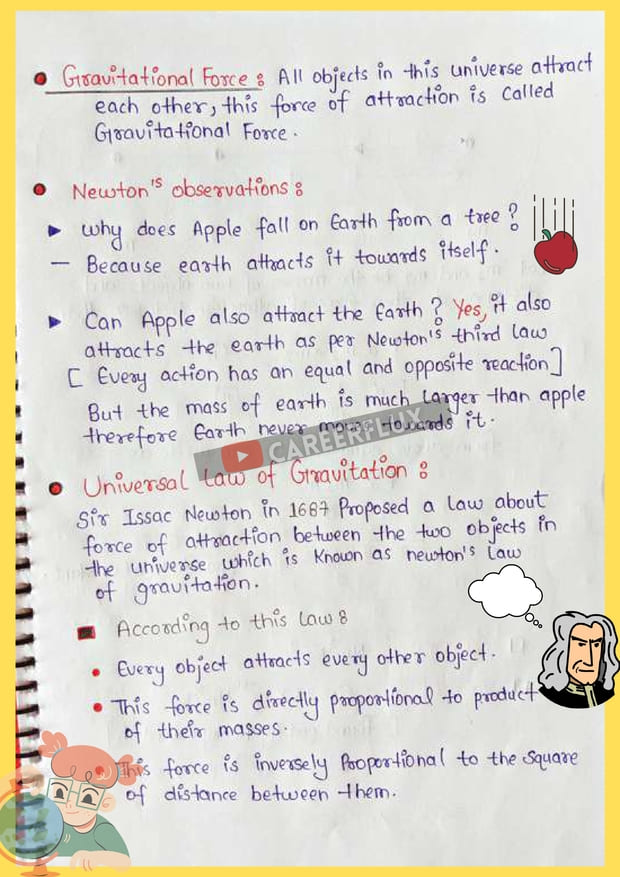 Gravitational Force : All objects in this universe attract
each other, this force of attraction is called
Gravitational Force.
Newton's observations :
Why does Apple fall on Earth from a tree ?
— Because earth attracts it towards itself.
Can Apple also attract the Earth ? Yes, it also
attracts the earth as per Newton's third law
[ Every action has an equal and opposite reaction ]
But the mass of earth is much larger than apple
therefore Earth never moves towards it.
CAREERFLUX
Universal Law of Gravitation :
Sir Issac Newton in 1687 Proposed a law about
force of attraction between the two objects in
the universe which is Known as newton's law
of gravitation.
According to this law :
Every object attracts every other object.
This force is directly proportional to product
of their masses.
This force is inversely Proportional to the square
of distance between them.